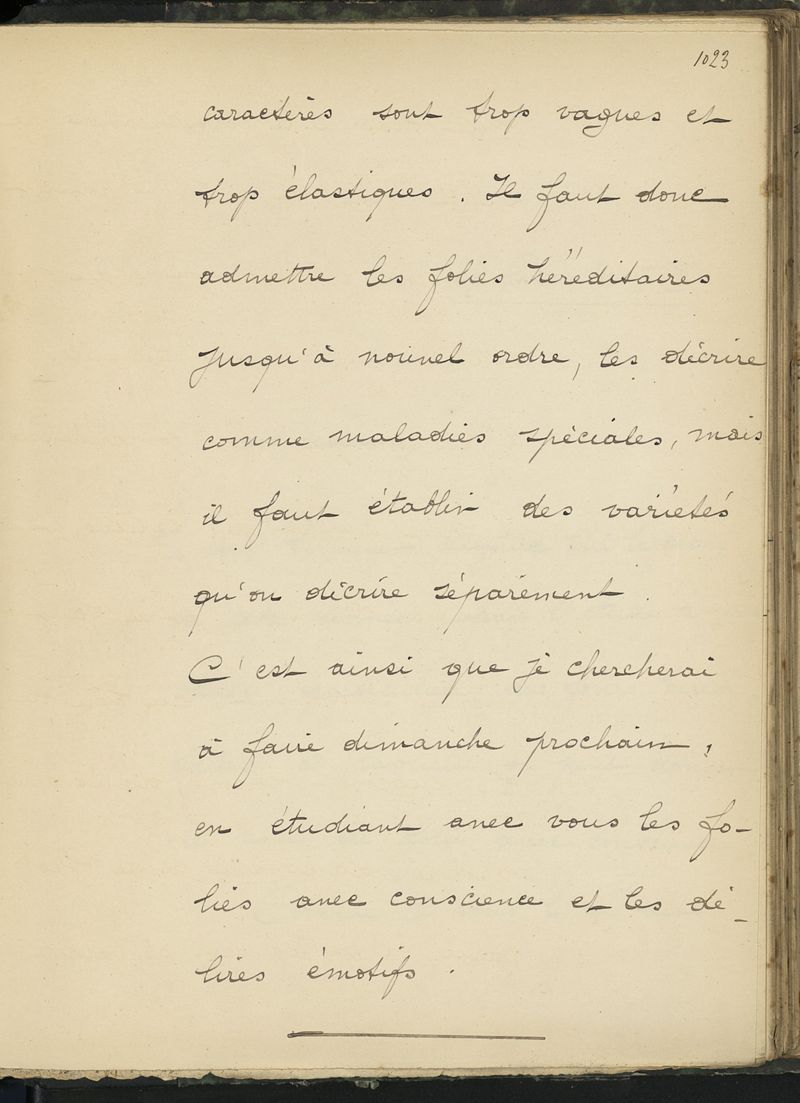 1023
caractères sont trop vagues et
trop élastiques. Il faut donc
admettre les folies héréditaires
jusqu'à nouvel ordre, les décrire
comme maladies spéciales, mais
il faut établir des variétés
qu'on décrire séparément.
C'est ainsi que je chercherai
à faire dimanche prochain,
en étudiant avec vous les fo-
lies avec conscience et les dé-
lires émotifs.